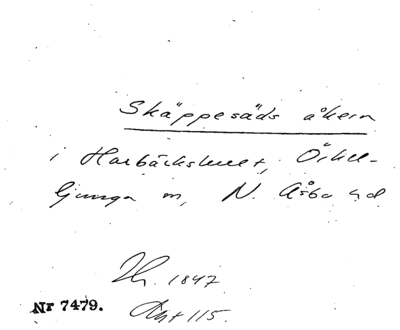 Skäppesäds åkern
i Harbäckshult, Örkel-
ljunga sn, N. Åsbo hd
1847
Akt 115.
Nr 7479.